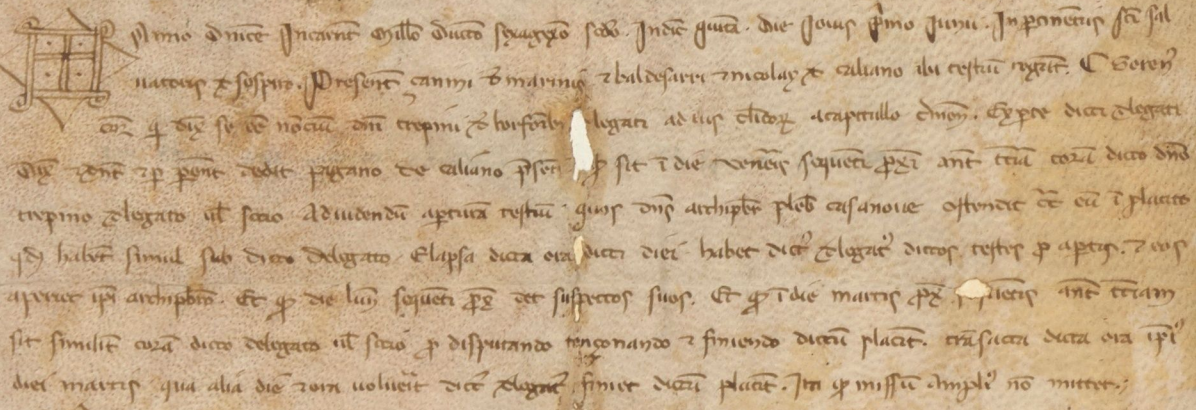 Anno dnice Incarnt Millo Ducto sexagxo scdo. Indict quita. die Iovis primo Iunii. In ptinentiis sci sal
vatoris de sospiro. Presentib canini de marinis et baldesarri et nicolay de caliano ibi testiu rogat. Coren
cor q dix se ee nociu dni trepini de legati ad lis acapitullo Ex pte dicti delegati
Dix et p dedit pigano de caliano psenti q sit i die veneris sequeti prox ant tciam cora dicto dno
trepino delegato ul socio Ad videndu apertura testiu quos dns archipbr pleb casanove ostendit ct eu i placito
qd habet simul sub dicto delegato. Elapsa dicta ora dicti diei habet dict delegat dictos testes p aptis. et eos
aperiet ipi archipbro. Et q die lun sequeti prox det suspectos suos. Et q i die martis prox ant tciam
sit similit cora dicto delegato ul socio p disputando tenconando et finiendo dictu placit. transacta dicta ora ipi
diei martis qua alia die et ora voluerit dict delegat finiet dictu placit. Ita q missu Ampli no mittet.